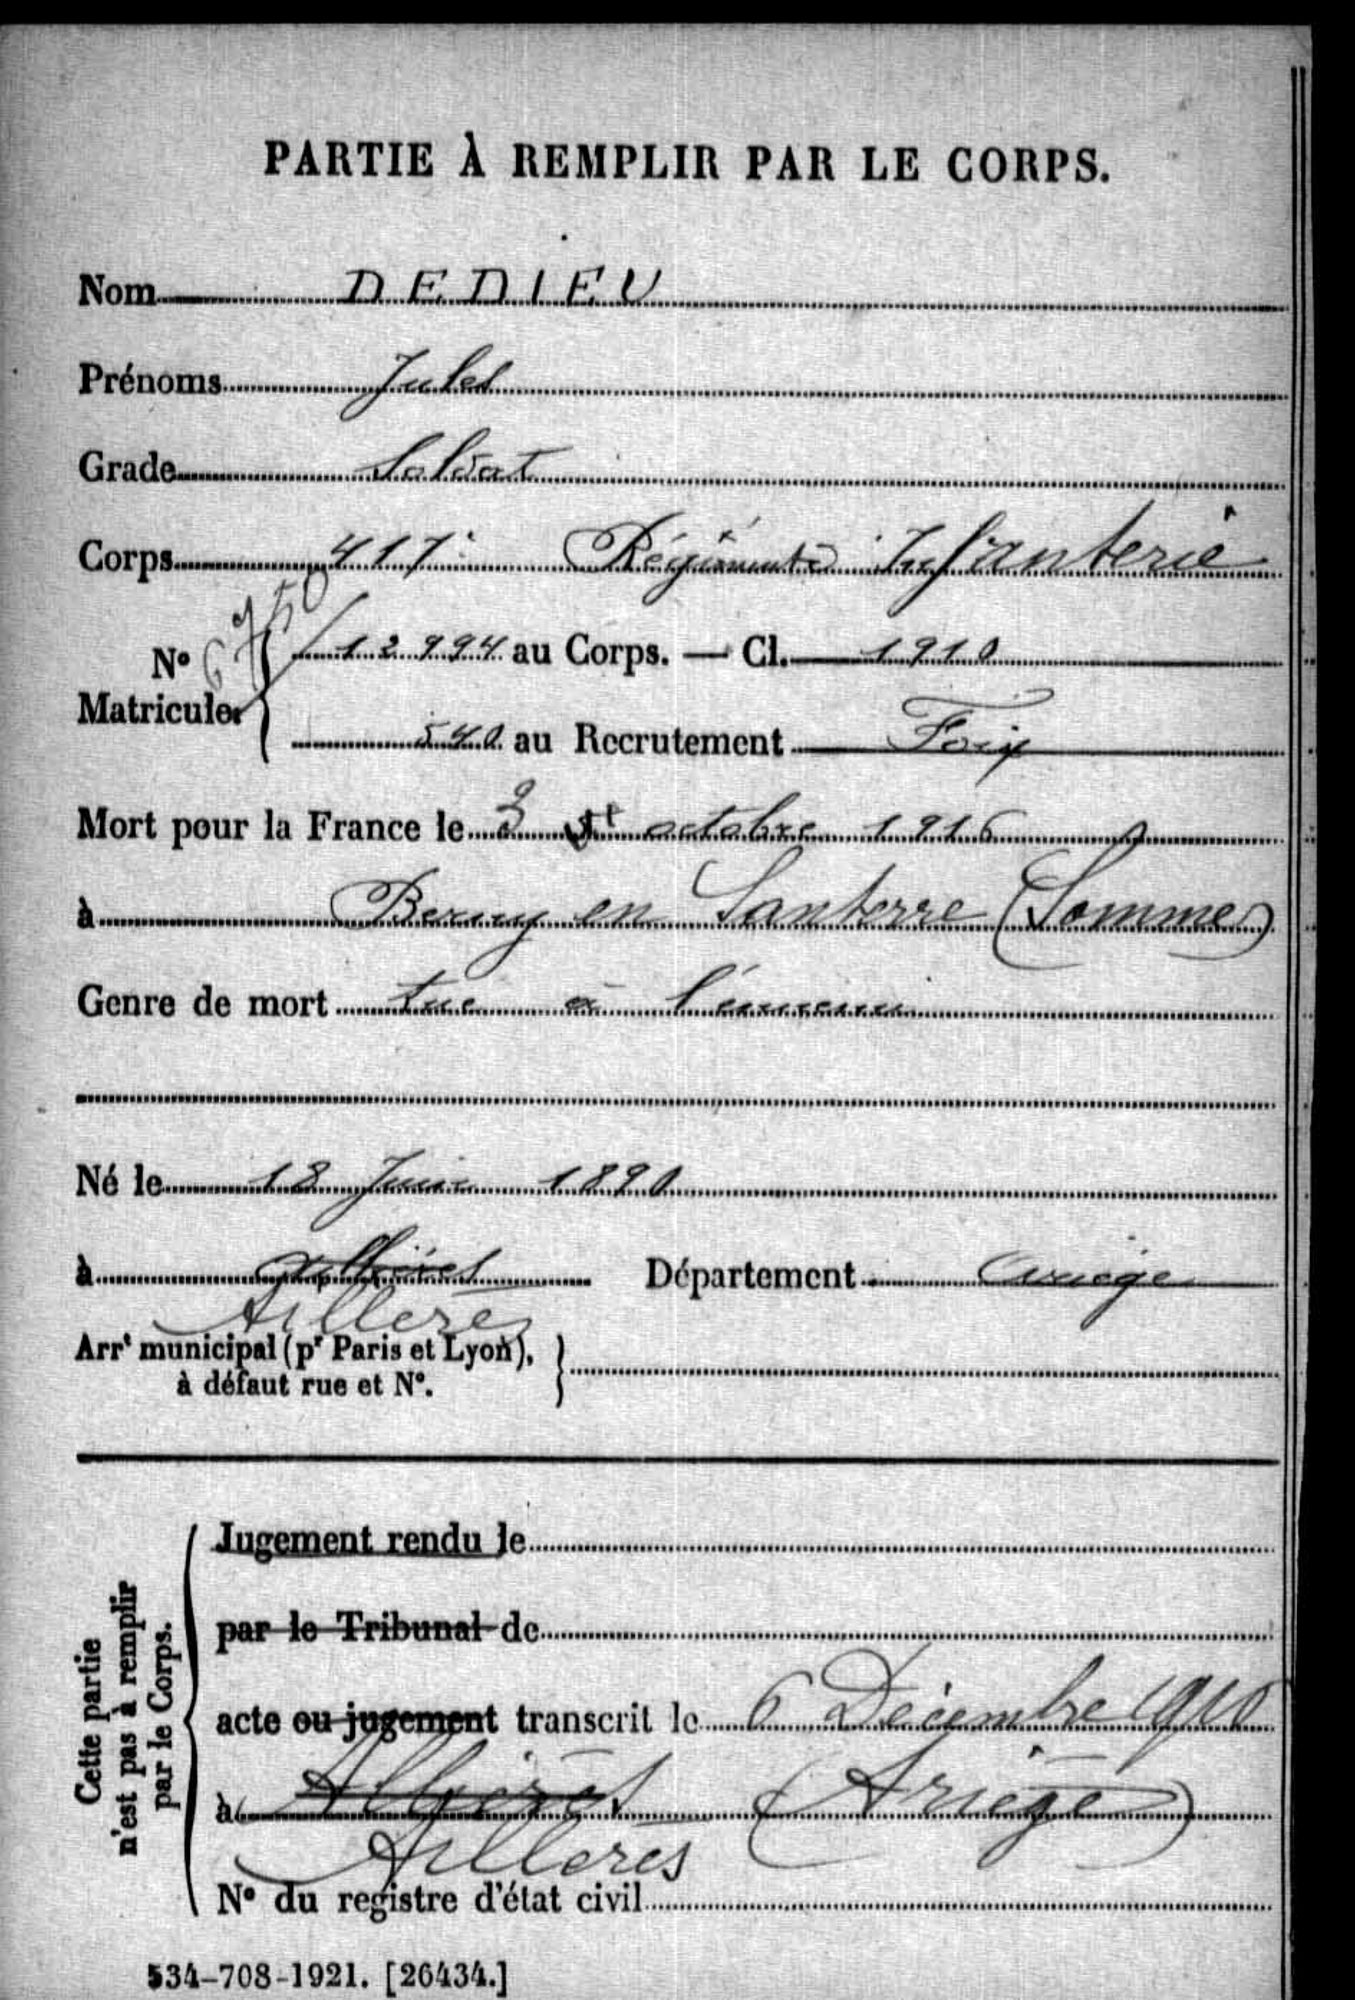 PARTIE À REMPLIR PAR LE CORPS.
Nom DEDIEU
Prénoms Jules
Grade Soldat
Corps 417e Régiment d' Infanterie
6750
N° Matricule. 12994 au Corps. — Cl. 1910
540 au Recrutement Foix
Mort pour la France le 3 octobre 1916
à Berny en Santerre (Somme)
Genre de mort tué à l'ennemi
Né le 18 Juin 1890
à Département Ariège
Aillères
Arrt municipal (pr Paris et Lyon),
à défaut rue et N°.
Cette partie
n'est pas à remplir
par le Corps.
Jugement rendu le
par le Tribunal de
acte ou jugement transcrit le 6 Décembre
à (Ariège)
Aillères
N° du registre d'état civil
534-708-1921. [26434.]